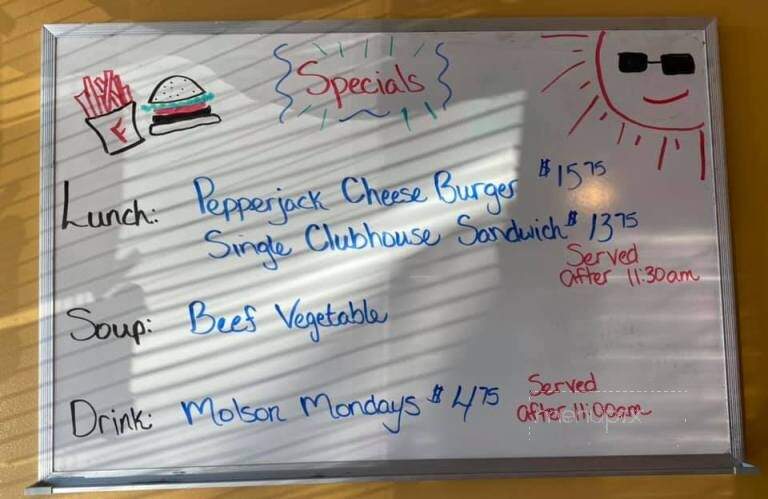 Specials
F
Lunch: Pepperjack Cheese Burger $15.75
Single Clubhouse Sandwich $13.75
Served
after 11:30am
Soup: Beef Vegetable
Drink: Molson Mondays $4.75
Served
after 11:00am
menupix